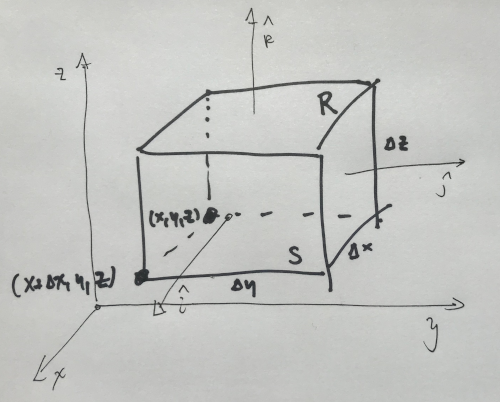 k̂
z
R
Δz
ĵ
(x, y, z)
Δx
S
(x+Δx, y, z)
Δy
î
y
x